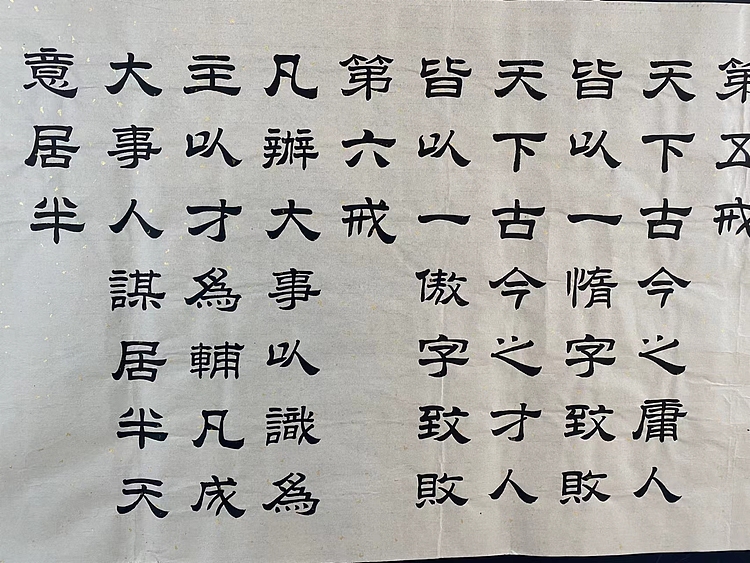 第五戒
天下古今之庸人
皆以一惰字致敗
天下古今之才人
皆以一傲字致敗
第六戒
凡辦大事以識為
主以才為輔凡成
大事人謀居半天
意居半